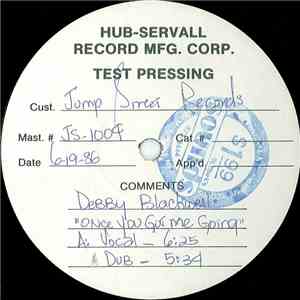 HUB-SERVALL
RECORD MFG. CORP.
TEST PRESSING
Cust. Jump Street Records
Mast. # JS-1004 Cat. #
Date 6-19-86 App'd
COMMENTS
Debby Blackwell
"Once You Got Me Going"
A: Vocal - 6:25
Dub - 5:34